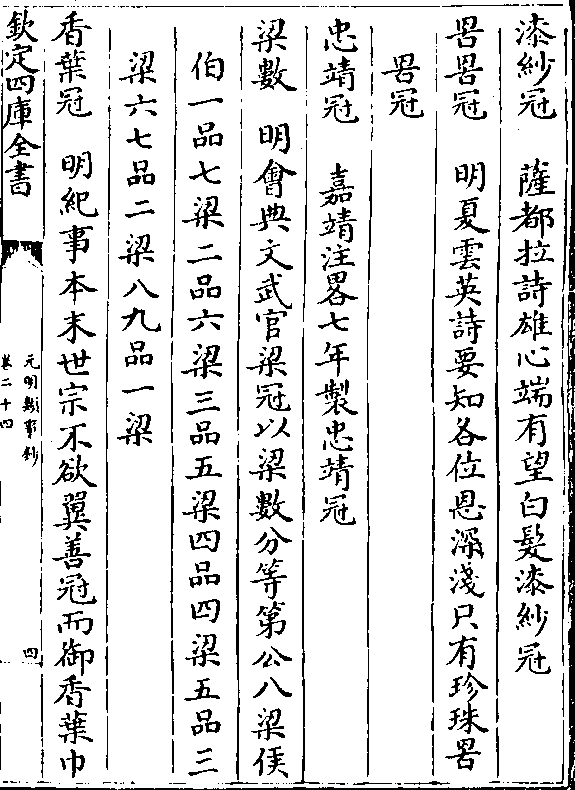 漆紗冠　薩都拉詩雄心端有望白髮漆紗冠
罟罟冠　明夏雲英詩要知各位恩深淺只有珍珠罟
罟冠
忠靖冠　嘉靖注畧七年製忠靖冠
梁數　明會典文武官梁冠以梁數分等第公八梁侯
伯一品七梁二品六梁三品五梁四品四梁五品三
梁六七品二梁八九品一梁
香葉冠　明紀事本末世宗不欲翼善冠而御香葉巾
欽定四庫全書
元明類事鈔
卷二十四
四